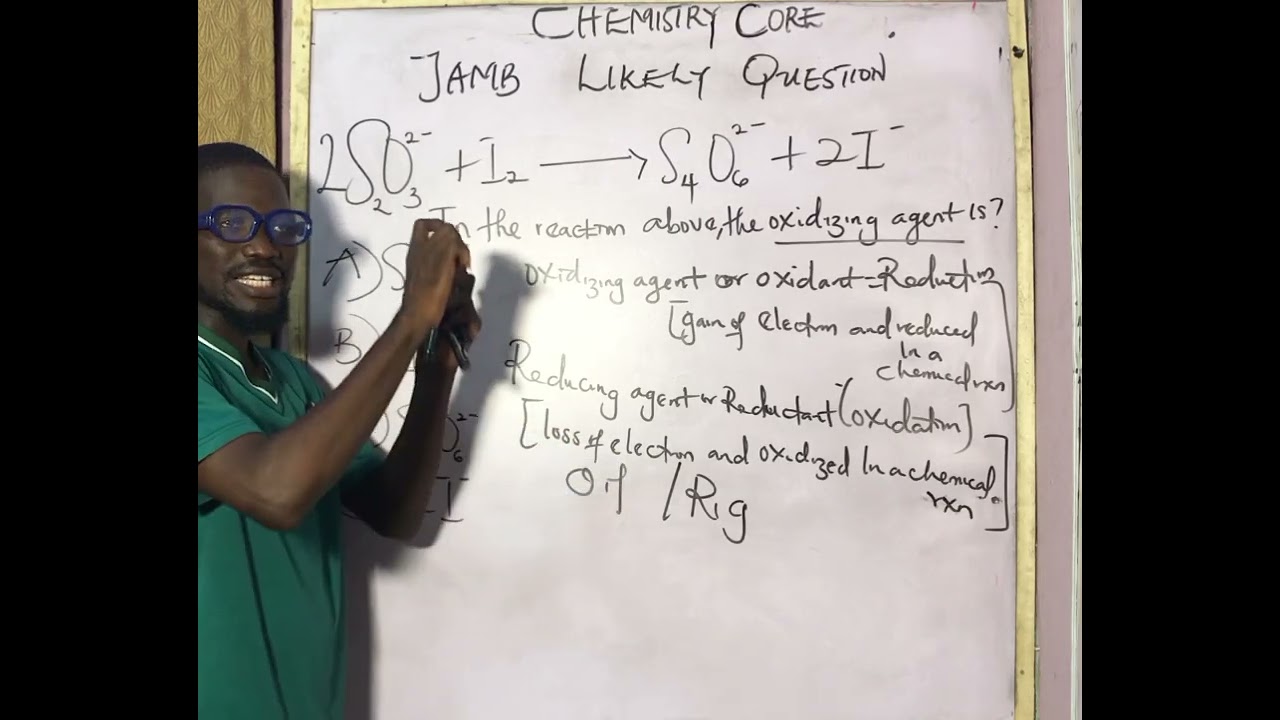 CHEMISTRY CORE
JAMB LIKELY QUESTION
2S₂O₃²⁻ + I₂ → S₄O₆²⁻ + 2I⁻
In the reaction above, the oxidizing agent is?
A) S
oxidizing agent or oxidant = Reduction
[gain of electron and reduced
In a
chemical rxn
B)
Reducing agent or Reductant (oxidation]
[loss of electron and oxidized In a chemical
rxn]
O₆²⁻
I⁻
Oil / Rig